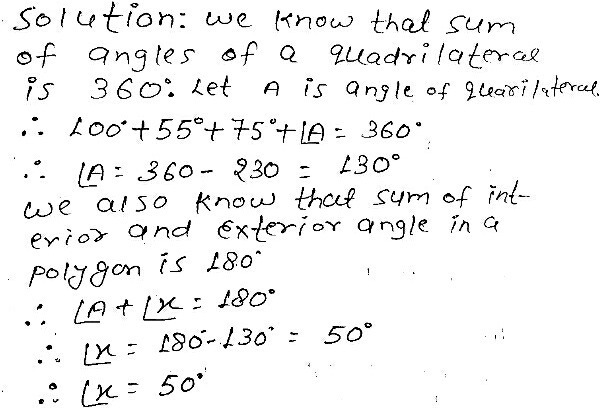 Solution: we know that sum
of angles of a quadrilateral
is 360°. Let A is angle of quarilateral.
∴ 100° + 55° + 75° + ∠A = 360°
∴ ∠A = 360 - 230 = 130°
we also know that sum of int-
erior and exterior angle in a
polygon is 180°
∴ ∠A + ∠x = 180°
∴ ∠x = 180° - 130° = 50°
∴ ∠x = 50°